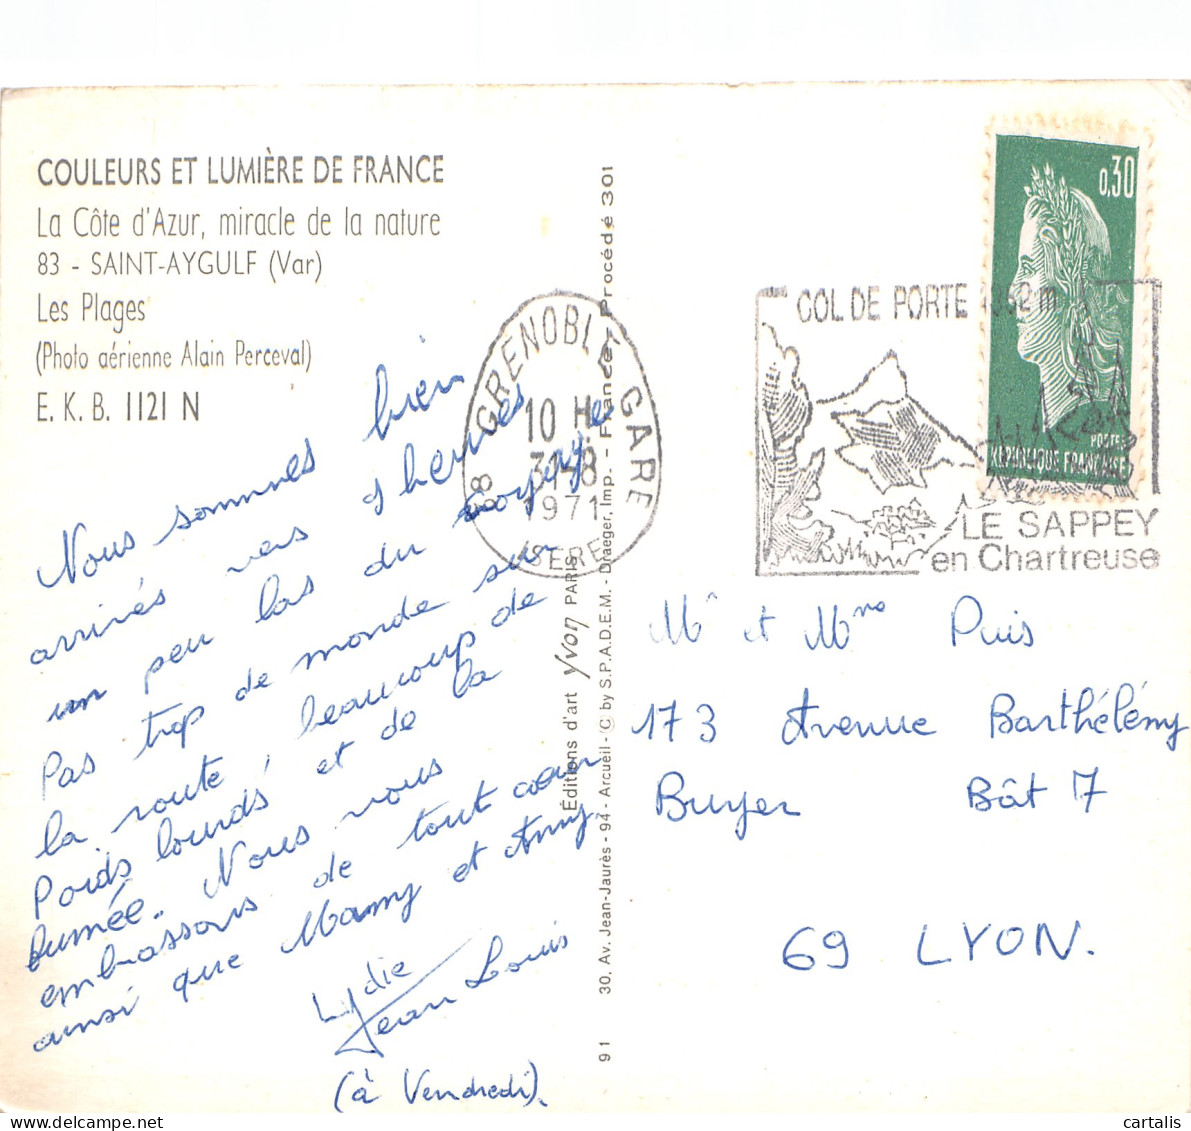 COULEURS ET LUMIÈRE DE FRANCE
La Côte d'Azur, miracle de la nature
83 - SAINT-AYGULF (Var)
Les Plages
(Photo aérienne Alain Perceval)
E. K. B. 1121 N
Nous sommes bien
arrivés vers 9 heures
un peu las du voyage
Pas trop de monde sur
la route, beaucoup de
Poids lourds et de la
fumée. Nous vous
embrassons de tout cœur
ainsi que Mamy et Anny
Lydie
Jean Louis
(à Vendredi).
91 30, Av. Jean-Jaurès - 94 - Arcueil - © by S.P.A.D.E.M. - Draeger, Imp. - France - Procédé 301
Éditions d'art Yvon PARIS
38 GRENOBLE GARE
10 H.
31-8
1971
ISERE
COL DE PORTE 1352 m
LE SAPPEY
en Chartreuse
0,30
POSTES
RÉPUBLIQUE FRANÇAISE
Mr et Mme Puis
173 Avenue Barthélémy
Buyer Bât 7
69 LYON.
www.delcampe.net
cartalis